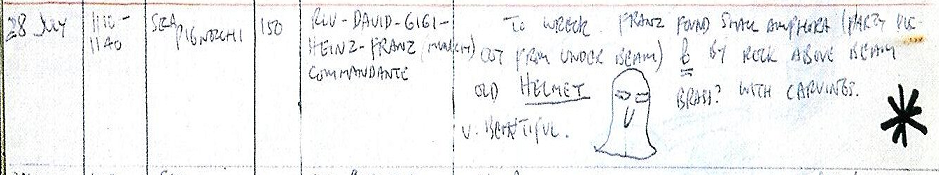 28 July
1110-
1140
SEA
150
REU-DAVID-GIGI-
HEINZ-FRANZ
COMMANDANTE
TO WRECK. FRANZ FOUND SMALL AMPHORA (PARTLY
OUT FROM UNDER BEAM) & BY ROCK ABOVE BEAM
OLD HELMET BRASS? WITH CARVINGS.
V. BEAUTIFUL.